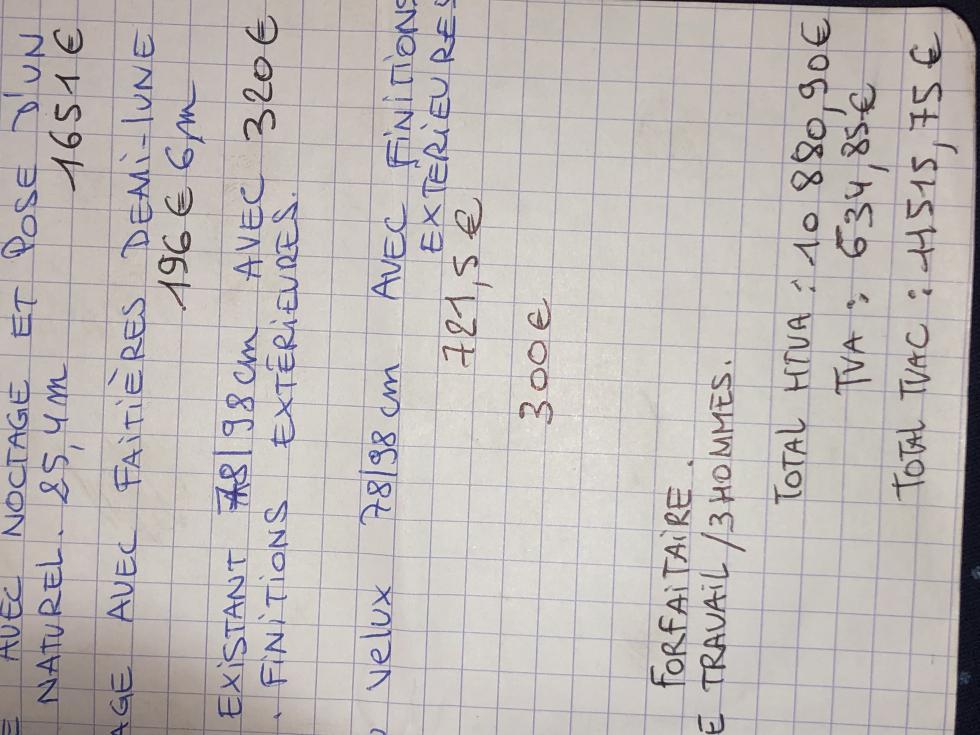 AVEC NOCTAGE ET POSE D'UN
NATUREL. 25,4m 1651€
AGE AVEC FAITIÈRES DEMI-LUNE
196€ 6m
EXISTANT 78/98cm AVEC 320€
. FINITIONS EXTÉRIEURES.
velux 78/98cm AVEC FINITIONS
EXTÉRIEURES
721,5€
300€
FORFAITAIRE.
E TRAVAIL/3HOMMES.
TOTAL HTVA : 10 880,90€
TVA : 634,85€
TOTAL TVAC : 11,515,75€